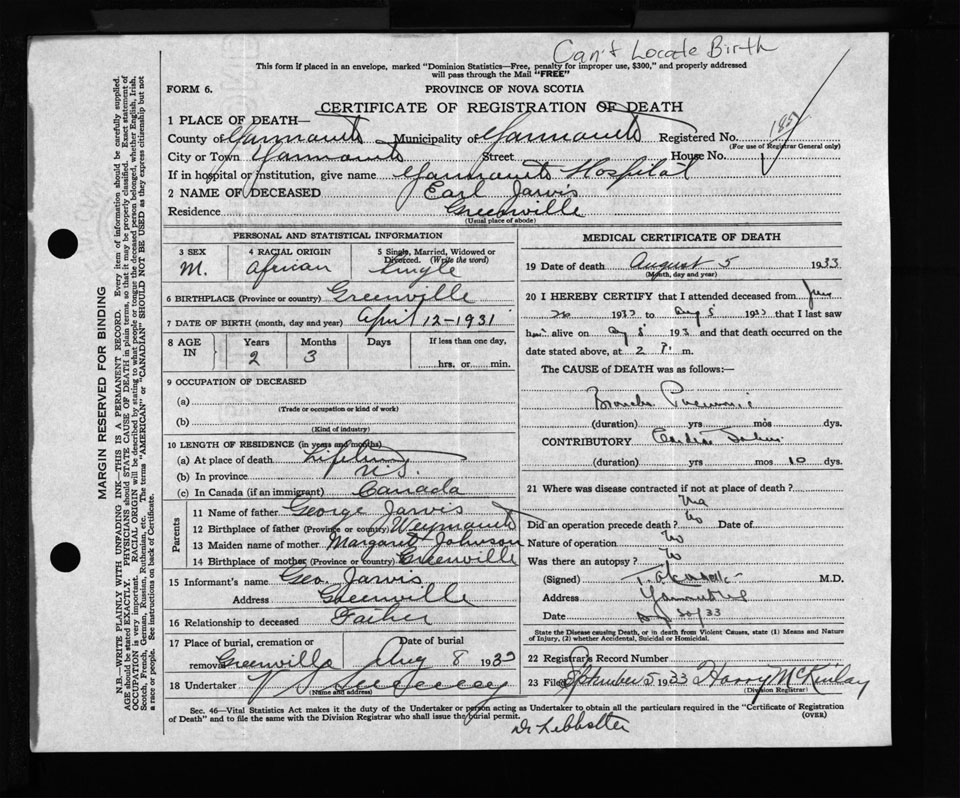 Can't Locate Birth
This form if placed in an envelope, marked "Dominion Statistics—Free, penalty for improper use, $300," and properly addressed
will pass through the Mail "FREE"
FORM 6. PROVINCE OF NOVA SCOTIA
CERTIFICATE OF REGISTRATION OF DEATH
1 PLACE OF DEATH—
County of Yarmouth Municipality of Yarmouth Registered No.
(For use of Registrar General only)
City or Town Yarmouth Street House No.
If in hospital or institution, give name Yarmouth Hospital
2 NAME OF DECEASED Earl Jarvis
Residence Greenville
(Usual place of abode)
PERSONAL AND STATISTICAL INFORMATION
3 SEX 4 RACIAL ORIGIN 5 Single, Married, Widowed or
Divorced. (Write the word)
M. African Single
6 BIRTHPLACE (Province or country) Greenville
7 DATE OF BIRTH (month, day and year) April 12-1931
8 AGE IN Years Months Days If less than one day,
2 3 hrs. or min.
9 OCCUPATION OF DECEASED
(a)
(Trade or occupation or kind of work)
(b)
(Kind of industry)
10 LENGTH OF RESIDENCE (in years and months)
(a) At place of death Lifetime
(b) In province N.S.
(c) In Canada (if an immigrant) Canada
Parents
11 Name of father George Jarvis
12 Birthplace of father (Province or country) Weymouth
13 Maiden name of mother Margaret Johnson
14 Birthplace of mother (Province or country) Greenville
15 Informant's name Geo. Jarvis
Address Greenville
16 Relationship to deceased Father
17 Place of burial, cremation or Date of burial
removal Greenville Aug 8 1933
18 Undertaker V S Sweeney
(Name and address)
MEDICAL CERTIFICATE OF DEATH
19 Date of death August 5 1933
(Month, day and year)
20 I HEREBY CERTIFY that I attended deceased from June
1933 to Aug 5 1933 that I last saw
him alive on Aug 5 193 and that death occurred on
date stated above, at 2 P. m.
The CAUSE of DEATH was as follows:—
Broncho Pneumonia
(duration) yrs mos dys.
CONTRIBUTORY Cardiac Failure
(duration) yrs mos 10 dys.
21 Where was disease contracted if not at place of death?
Did an operation precede death? No Date of
Nature of operation No
Was there an autopsy? No
(Signed) M.D.
Address Yarmouth
Date 33
State the Disease causing Death, or in death from Violent Causes, state (1) Means and Nature
of Injury, (2) whether Accidental, Suicidal or Homicidal.
22 Registrar's Record Number
23 Filed September 5 1933 Harry McKinlay
(Division Registrar)
Sec. 46—Vital Statistics Act makes it the duty of the Undertaker or person acting as Undertaker to obtain all the particulars required in the "Certificate of Registration
of Death" and to file the same with the Division Registrar who shall issue the burial permit. (OVER)
MARGIN RESERVED FOR BINDING
N.B.—WRITE PLAINLY WITH UNFADING INK—THIS IS A PERMANENT RECORD. Every item of information should be carefully supplied.
AGE should be stated EXACTLY. PHYSICIANS should STATE CAUSE OF DEATH in plain terms, so that it may be properly classified. Exact statement of
OCCUPATION is very important. RACIAL ORIGIN will be described by stating to what people or tongue the deceased person belonged, whether English, Irish,
Scotch, French, German, Russian, Ruthenian, etc. The terms "AMERICAN" or "CANADIAN" SHOULD NOT BE USED as they express citizenship but not
a race or people. See instructions on back of Certificate.